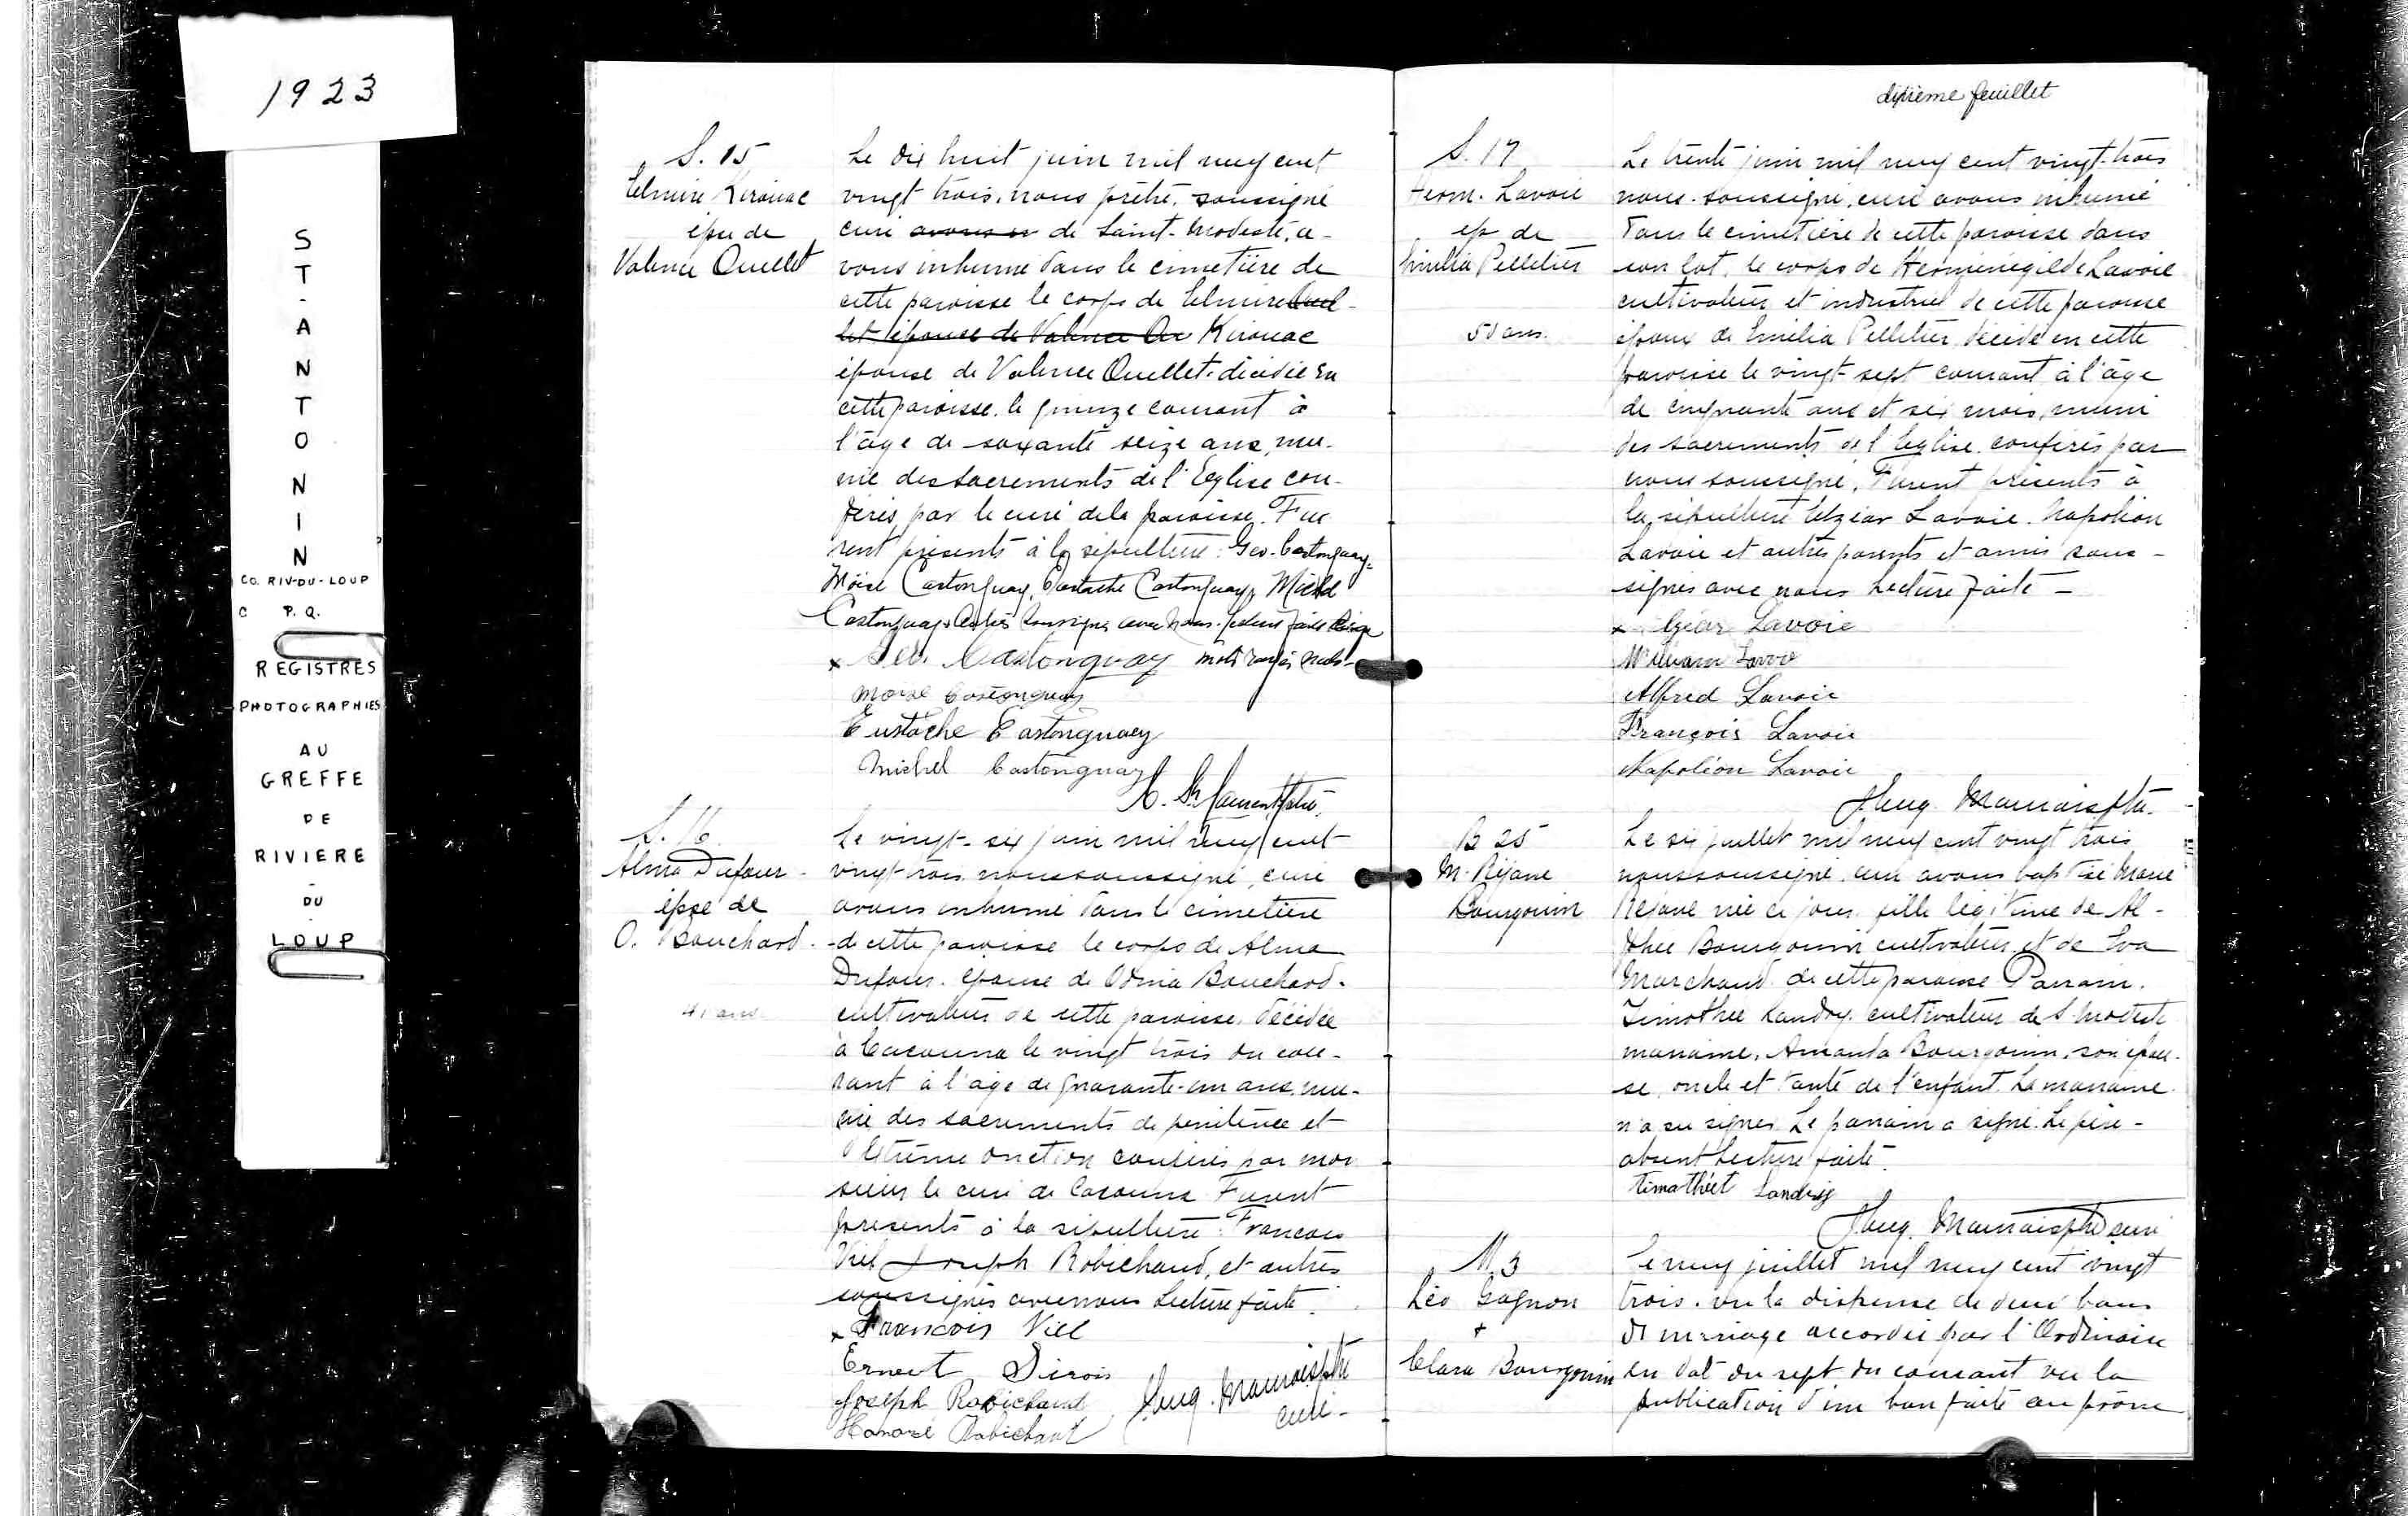 1923
ST-ANTONIN
CO. RIV-DU-LOUP
C P.Q.
REGISTRES
PHOTOGRAPHIES
AU
GREFFE
DE
RIVIERE
-
DU
-
LOUP
S. 15
Elmire Kirouac
épse de
Valence Ouellet
Le dix huit juin mil neuf cent
vingt trois, nous prêtre, soussigné
curé avons in de Saint-Modeste, a-
vons inhumé dans le cimetière de
cette paroisse le corps de Elmire Ouel-
let épouse de Valence Ou Kirouac
épouse de Valence Ouellet, décédée en
cette paroisse le quinze courant à
l'âge de soixante seize ans, mu-
nie des sacrements de l'Eglise con-
férés par le curé de la paroisse. Fu-
rent présents à la sépulture: Geo. Castonguay,
Moïse Castonguay, Eustache Castonguay, Michel
Castonguay & autres soussignés avec nous. Lecture faite
x Geo. Castonguay mots rayés nuls-
Moise Castonguay
Eustache Castonguay
Michel Castonguay
S. 16
Alma Dufour
épse de
O. Bouchard
41 ans
Le vingt-six juin mil neuf cent
vingt-trois nous soussigné, curé
avons inhumé dans le cimetière
de cette paroisse le corps de Alma
Dufour, épouse de Odina Bouchard,
cultivateur de cette paroisse, décédée
à Cacouna le vingt trois du cou-
rant à l'âge de quarante-un ans, mu-
nie des sacrements de pénitence et
d'extrême onction conférés par mon
sieur le curé de Cacouna. Furent
présents à la sépulture: Francois
Viel Joseph Robichaud, et autres
soussignés avec nous Lecture faite.
x Francois Viel
Ernest Sirois
Joseph Robichaud
Honoré Robichaud
curé-
dixième feuillet
S. 17
Herm. Lavoie
ép de
Emilia Pelletier
50 ans.
Le trente juin mil neuf cent vingt-trois
nous soussigné, curé avons inhumé
dans le cimetière de cette paroisse dans
son lot, le corps de Herménégilde Lavoie
cultivateur et industriel de cette paroisse
époux de Emilia Pelletier, décédé en cette
paroisse le vingt-sept courant à l'âge
de cinquante ans et six mois, muni
des sacrements de l'Eglise conférés par
nous soussigné. Furent présents à
la sépulture Elzéar Lavoie, Napoléon
Lavoie et autres parents et amis sous-
signés avec nous Lecture faite -
x Elzéar Lavoie
William Lavoie
Alfred Lavoie
François Lavoie
Napoléon Lavoie
B 25
M. Réjane
Bourgouin
Le six juillet mil neuf cent vingt trois
nous soussigné, curé avons baptisé Marie
Réjane née ce jour, fille légitime de Al-
phée Bourgouin cultivateur, et de Eva
Marchand de cette paroisse. Parrain,
Timothée Landry, cultivateur de S. Modeste
marraine, Amanda Bourgouin, son épou-
se, oncle et tante de l'enfant. La marraine
n'a su signer. Le parrain a signé. Le père-
absent Lecture faite.
Timothéet Landry
M 3
Léo Gagnon
+
Clara Bourgouin
Le neuf juillet mil neuf cent vingt
trois, vu la dispense de deux bans
de mariage accordée par l'Ordinaire
en dat du sept du courant vu la
publication d'un ban faite au prône